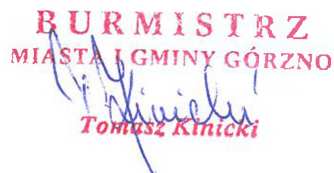 BURMISTRZ
MIASTA I GMINY GÓRZNO
Tomasz Kinicki